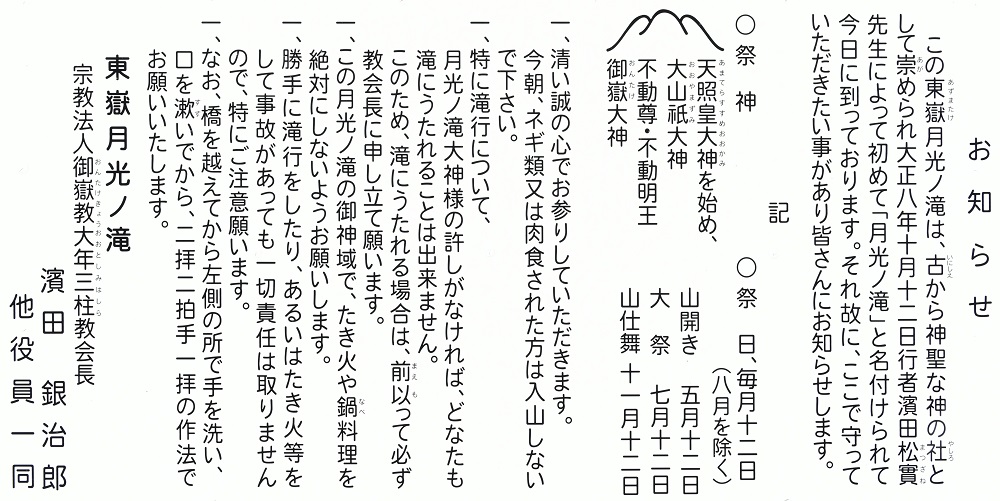 お知らせ
この東嶽月光ノ滝は、古から神聖な神の社と
して崇められ大正八年十月十二日行者濱田松實
先生によって初めて「月光ノ滝」と名付けられて
今日に到っております。それ故に、ここで守って
いただきたい事があり皆さんにお知らせします。
記
〇祭神
天照皇大神を始め、
大山祇大神
不動尊・不動明王
御嶽大神
〇祭日、毎月十二日
（八月を除く）
山開き 五月十二日
大祭 七月十二日
山仕舞 十一月十二日
一、清い誠の心でお参りしていただきます。
今朝、ネギ類又は肉食された方は入山しない
で下さい。
一、特に滝行について、
月光ノ滝大神様の許しがなければ、どなたも
滝にうたれることは出来ません。
このため、滝にうたれる場合は、前以って必ず
教会長に申し立て願います。
一、この月光ノ滝の御神域で、たき火や鍋料理を
絶対にしないようお願いします。
一、勝手に滝行をしたり、あるいはたき火等を
して事故があっても一切責任は取りません
ので、特にご注意願います。
一、なお、橋を越えてから左側の所で手を洗い、
口を漱いでから、二拝二拍手一拝の作法で
お願いいたします。
東嶽月光ノ滝
宗教法人御嶽教大年三柱教会長
濱田銀治郎
他役員一同